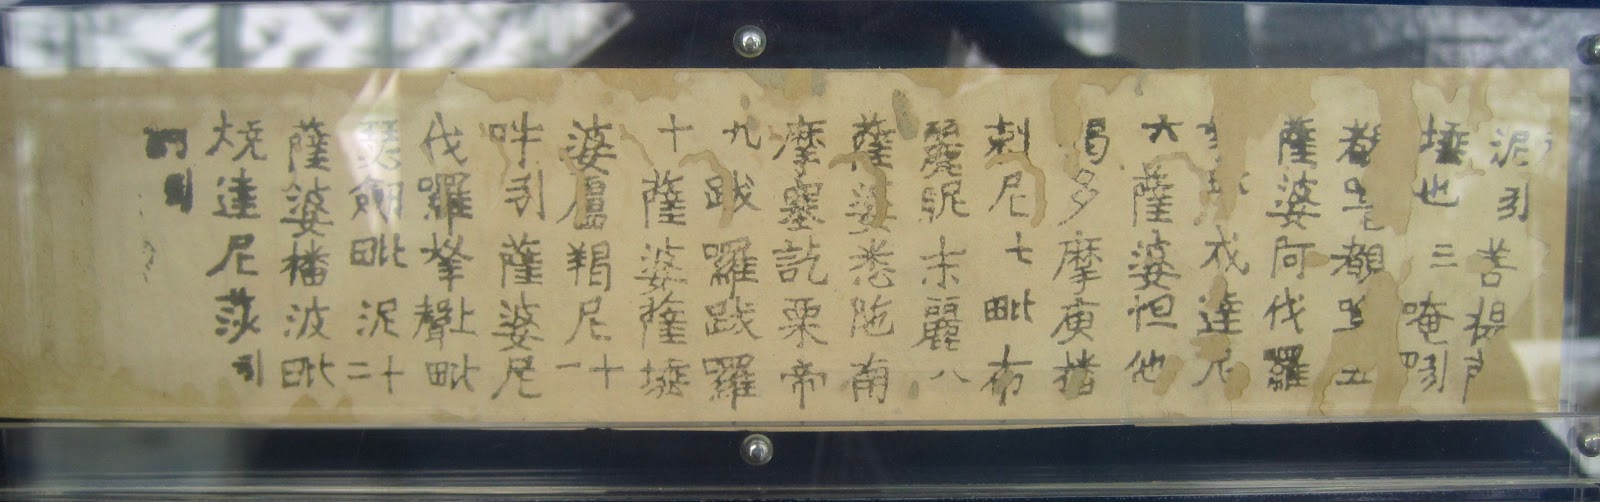 泥引菩提
墶也三唵引
都
薩婆阿伐羅
戍達尼
六薩婆怛他
揭多摩庾播
刺尼七毗布
麗昵末麗八
薩婆悉陁南
摩塞訖栗帝
九跋囉跋羅
十薩婆薩墶
婆盧羯尼十一
吽引薩婆尼
伐羅拏上聲毗
瑟劒毗泥十二
薩婆播波毗
燒達尼莎引
訶引